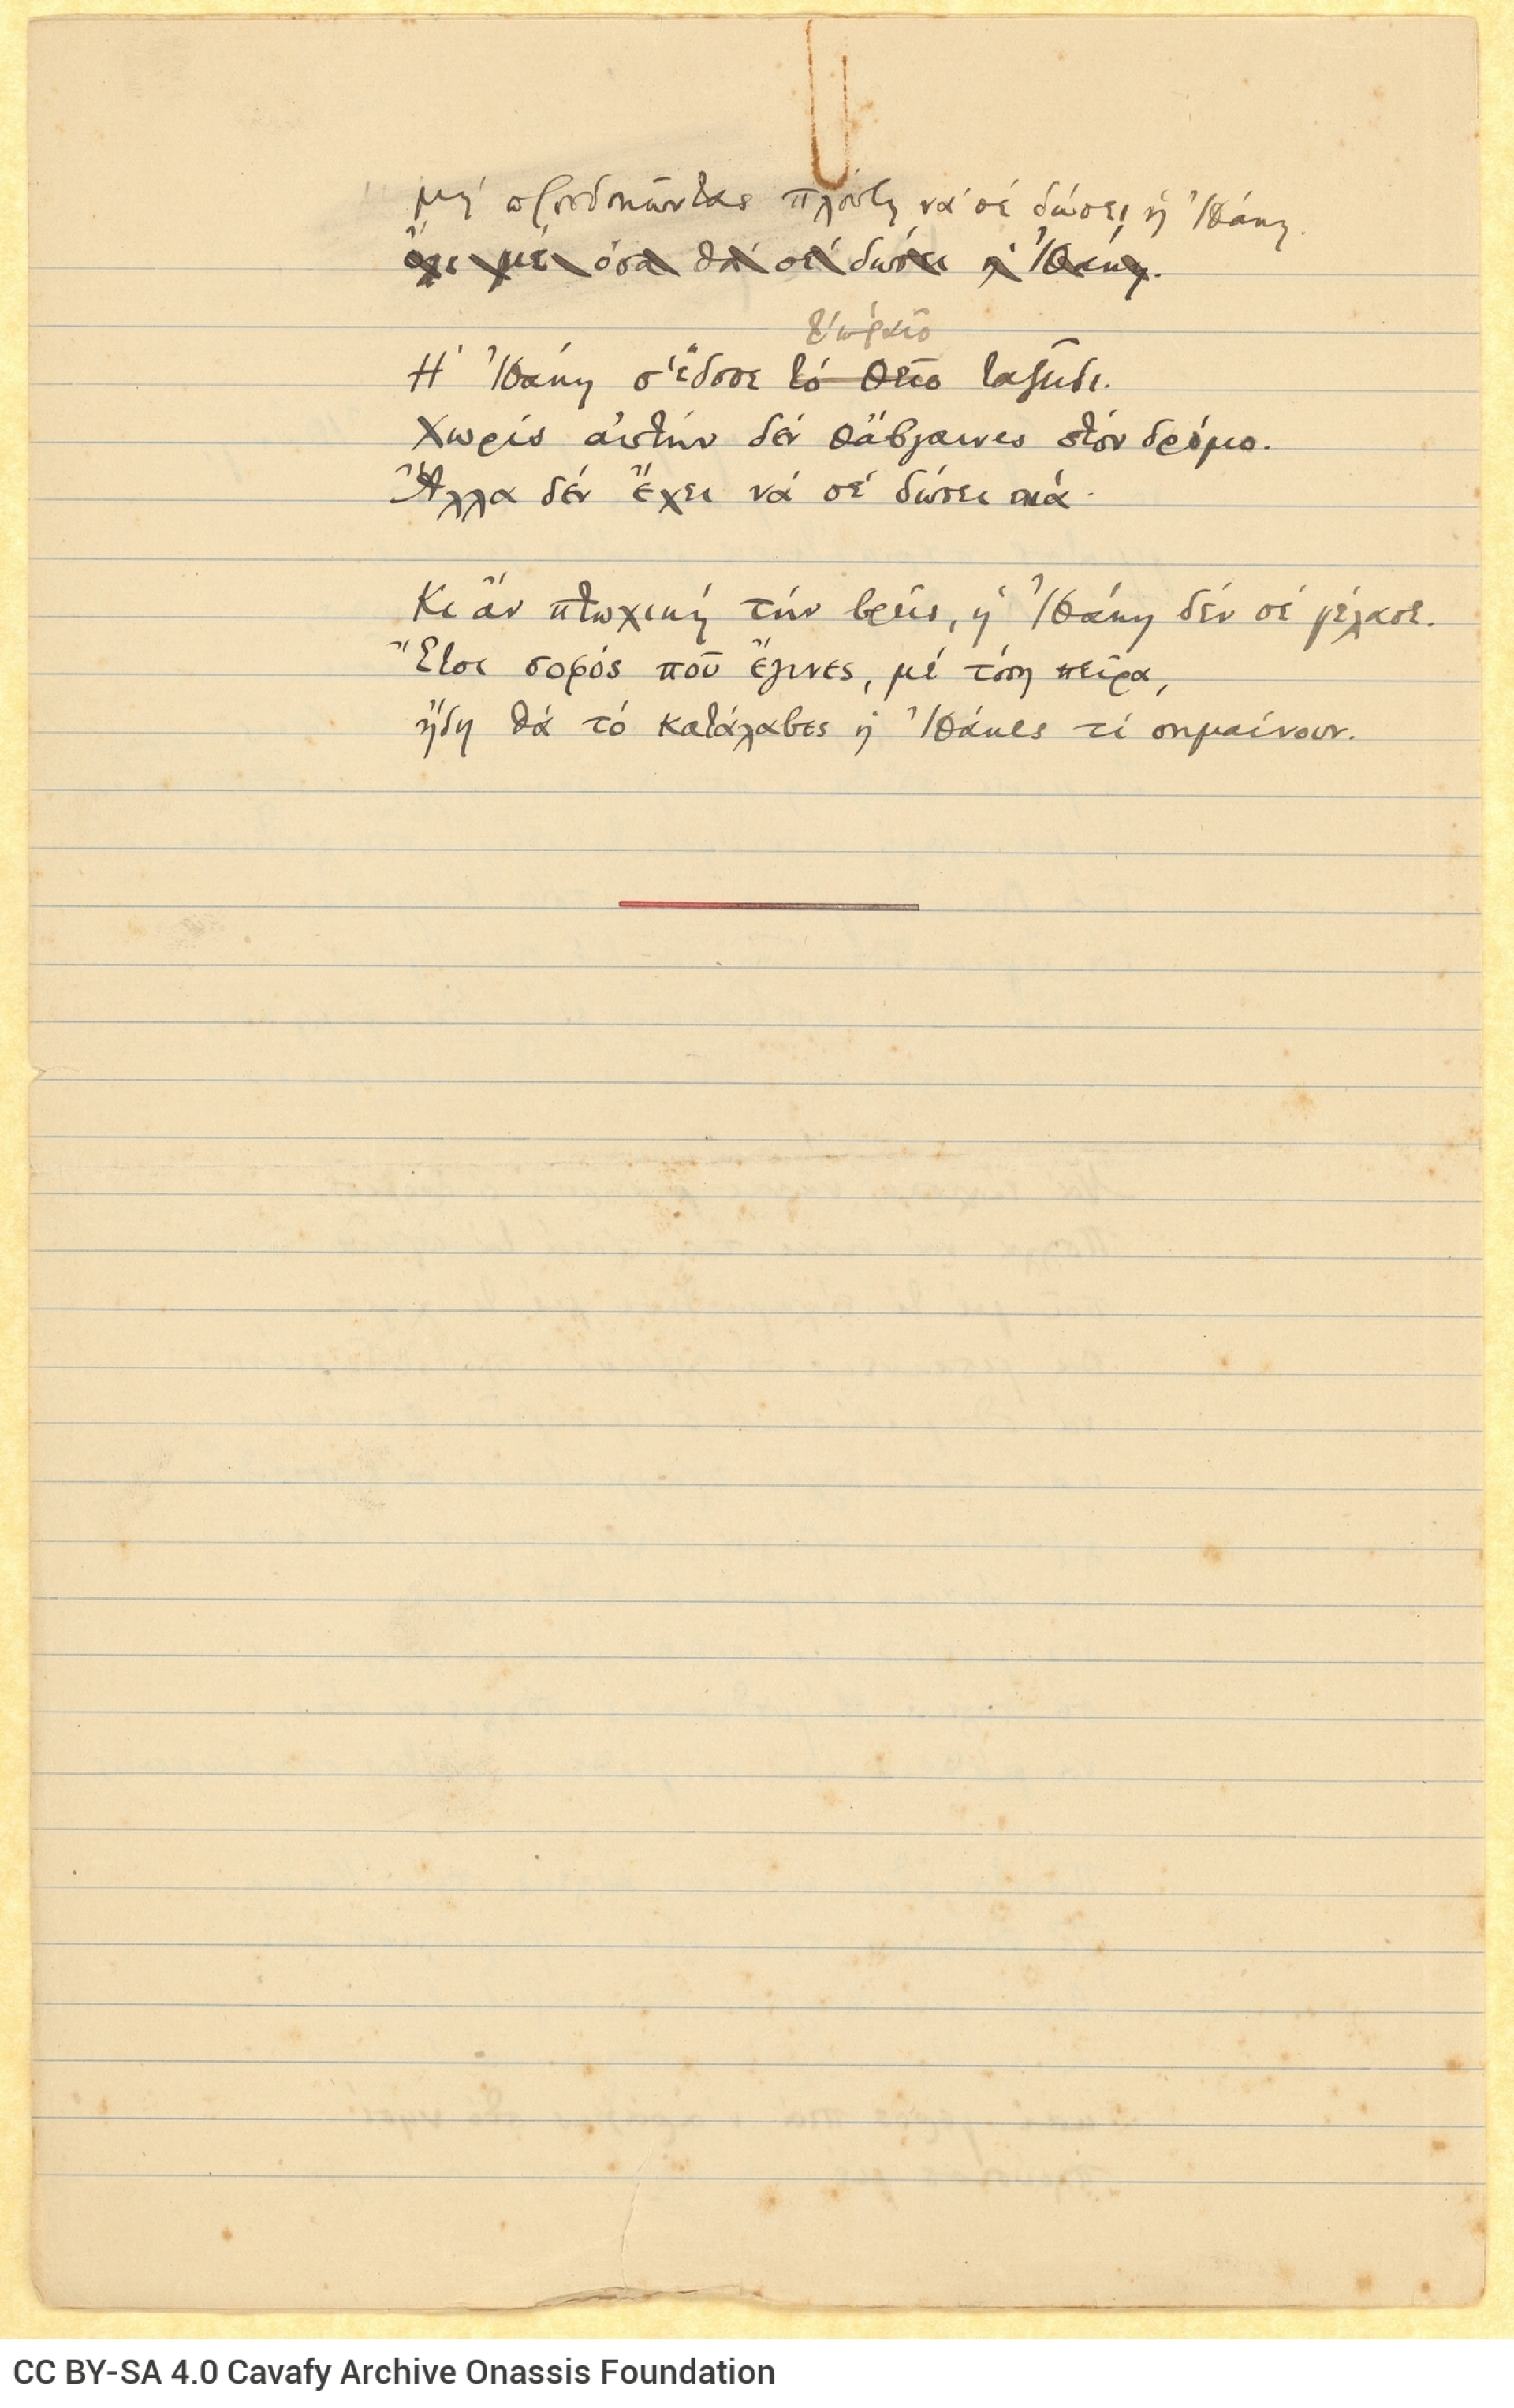 μή προσδοκῶντας πλούτη νά σέ δώσει ἡ Ἰθάκη.
ὄχι μέ ὅσα θά σέ δώσει ἡ Ἰθάκη.
τ' ὡραῖο
Η Ἰθάκη σ' ἔδωσε τό θεῖο ταξεῖδι.
Χωρίς αὐτήν δέν θἄβγαινες στόν δρόμο.
Ἄλλα δέν ἔχει νά σέ δώσει πιά.
Κι ἄν πτωχική τήν βρεῖς, ἡ Ἰθάκη δέν σέ γέλασε.
Ἔτσι σοφός πού ἔγινες, μέ τόση πεῖρα,
ἤδη θά τό κατάλαβες ᾑ Ἰθάκες τί σημαίνουν.
CC BY-SA 4.0 Cavafy Archive Onassis Foundation